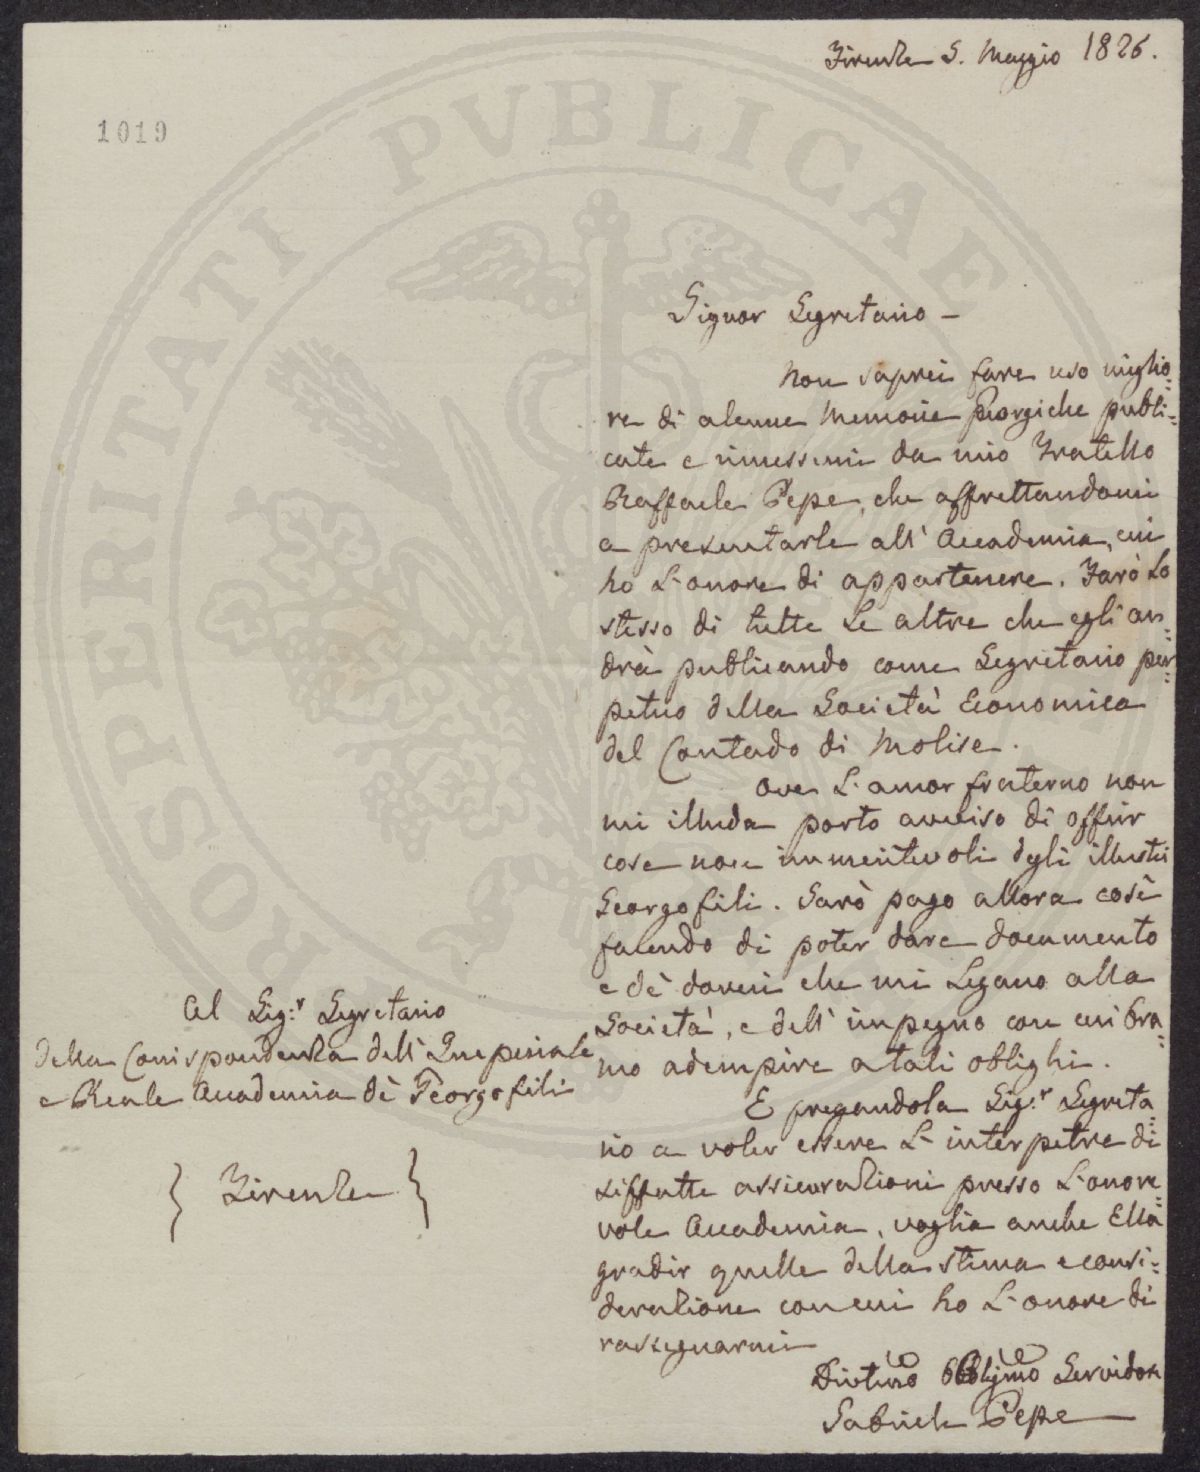 Firenze 5. Maggio 1826.
1019
Signor Segretario –
Non saprei fare uso miglio=
re di alcune Memorie Georgiche publi=
cate e rimessemi da mio Fratello
Raffaele Pepe, che affrettandomi
a presentarle all' Accademia, cui
ho L'onore di appartenere. Farò Lo
stesso di tutte Le altre che egli an=
drà publicando come Segretario per=
petuo della Società Economica
del Contado di Molise.
Ove L'amor fraterno non
mi illuda porto avviso di offrir
cose non immeritevoli degli illustri
Georgofili. Sarò pago allora così
facendo di poter dare documento
e de' doveri che mi Legano alla
Società, e dell' impegno con cui bra=
mo adempire a tali oblighi.
E pregandola Sig.r Segreta=
rio a voler essere L'interpetre di
siffatte assicurazioni presso L'onore=
vole Accademia, voglia anche Ella
gradir quelle della stima e consi=
derazione con cui ho L'onore di
rassegnarmi
Divtmo Obblmo Servidore
Gabriele Pepe
Al Sig.r Segretario
della Corrispondenza dell' Imperiale
e Reale Accademia de' Georgofili
} Firenze }
PROSPERITATI PVBLICAE